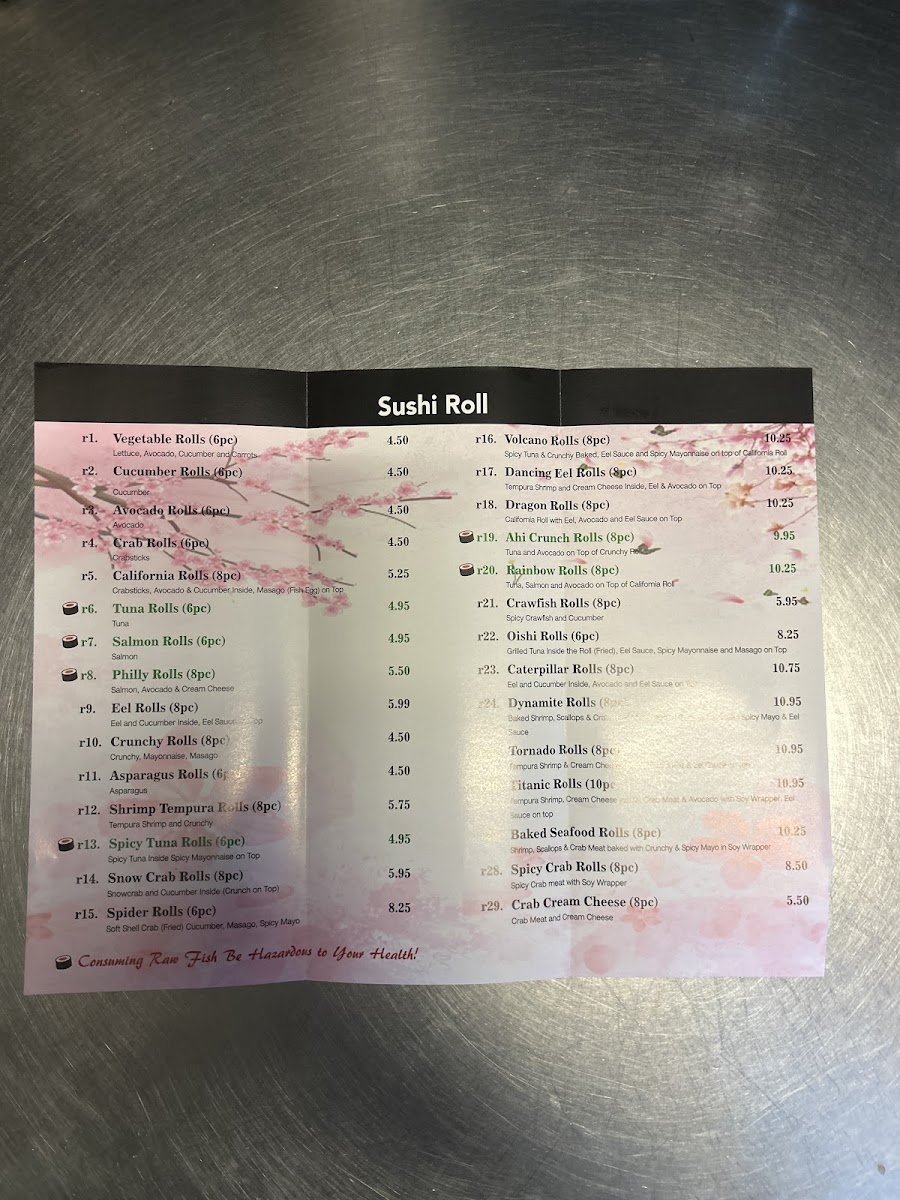 Sushi Roll
r1. Vegetable Rolls (6pc) 4.50
Lettuce, Avocado, Cucumber and Carrots
r2. Cucumber Rolls (6pc) 4.50
Cucumber
r3. Avocado Rolls (6pc) 4.50
Avocado
r4. Crab Rolls (6pc) 4.50
Crabsticks
r5. California Rolls (8pc) 5.25
Crabsticks, Avocado & Cucumber Inside, Masago (Fish Egg) on Top
r6. Tuna Rolls (6pc) 4.95
Tuna
r7. Salmon Rolls (6pc) 4.95
Salmon
r8. Philly Rolls (8pc) 5.50
Salmon, Avocado & Cream Cheese
r9. Eel Rolls (8pc) 5.99
Eel and Cucumber Inside, Eel Sauce Top
r10. Crunchy Rolls (8pc) 4.50
Crunchy, Mayonnaise, Masago
r11. Asparagus Rolls 4.50
Asparagus
r12. Shrimp Tempura Rolls (8pc) 5.75
Tempura Shrimp and Crunchy
r13. Spicy Tuna Rolls (6pc) 4.95
Spicy Tuna Inside Spicy Mayonnaise on Top
r14. Snow Crab Rolls (8pc) 5.95
Snowcrab and Cucumber Inside (Crunch on Top)
r15. Spider Rolls (6pc) 8.25
Soft Shell Crab (Fried) Cucumber, Masago, Spicy Mayo
Consuming Raw Fish Be Hazardous to Your Health!
r16. Volcano Rolls (8pc) 10.25
Spicy Tuna & Crunchy Baked, Eel Sauce and Spicy Mayonnaise on top of California Roll
r17. Dancing Eel Rolls (8pc) 10.25
Tempura Shrimp and Cream Cheese Inside, Eel & Avocado on Top
r18. Dragon Rolls (8pc) 10.25
California Roll with Eel, Avocado and Eel Sauce on Top
r19. Ahi Crunch Rolls (8pc) 9.95
Tuna and Avocado on Top of Crunchy
r20. Rainbow Rolls (8pc) 10.25
Tuna, Salmon and Avocado on Top of California Roll
r21. Crawfish Rolls (8pc) 5.95
Spicy Crawfish and Cucumber
r22. Oishi Rolls (6pc) 8.25
Grilled Tuna Inside the Roll (Fried), Eel Sauce, Spicy Mayonnaise and Masago on Top
r23. Caterpillar Rolls (8pc) 10.75
Eel and Cucumber Inside, Avocado and Eel Sauce on
r24. Dynamite Rolls 10.95
Baked Shrimp, Scallops & Spicy Mayo & Eel
Sauce
Tornado Rolls (8pc) 10.95
Tempura Shrimp & Cream
Titanic Rolls (10pc 10.95
Tempura Shrimp, Cream Cheese Crab Meat & Avocado with Soy Wrapper, Eel
Sauce on top
Baked Seafood Rolls (8pc) 10.25
Shrimp, Scallops & Crab Meat baked with Crunchy & Spicy Mayo in Soy Wrapper
r28. Spicy Crab Rolls (8pc) 8.50
Spicy Crab meat with Soy Wrapper
r29. Crab Cream Cheese (8pc) 5.50
Crab Meat and Cream Cheese